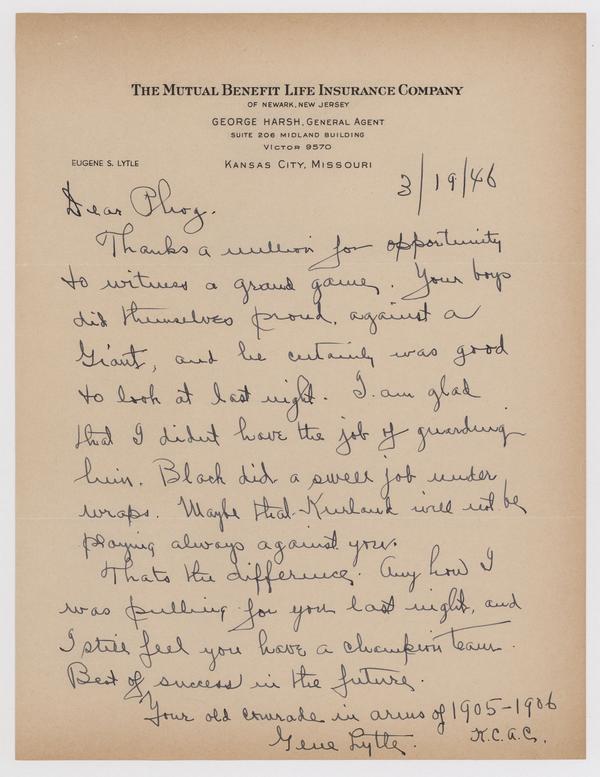 THE MUTUAL BENEFIT LIFE INSURANCE COMPANY
OF NEWARK, NEW JERSEY
GEORGE HARSH, GENERAL AGENT
SUITE 206 MIDLAND BUILDING
VICTOR 9570
EUGENE S. LYTLE
KANSAS CITY, MISSOURI
3/19/46
Dear Phog.
Thanks a million for opportunity
to witness a grand game. Your boys
did themselves proud, against a
Giant, and he certainly was good
to look at last night. I am glad
that I didnt have the job of guarding
him. Black did a swell job under
wraps. Maybe that Kurland will not be
playing always against you.
Thats the difference. Any how I
was pulling for you last night, and
I still feel you have a champion team.
Best of success in the future.
Your old comrade in arms of 1905-1906
Gene Lytle. K.C.A.C.